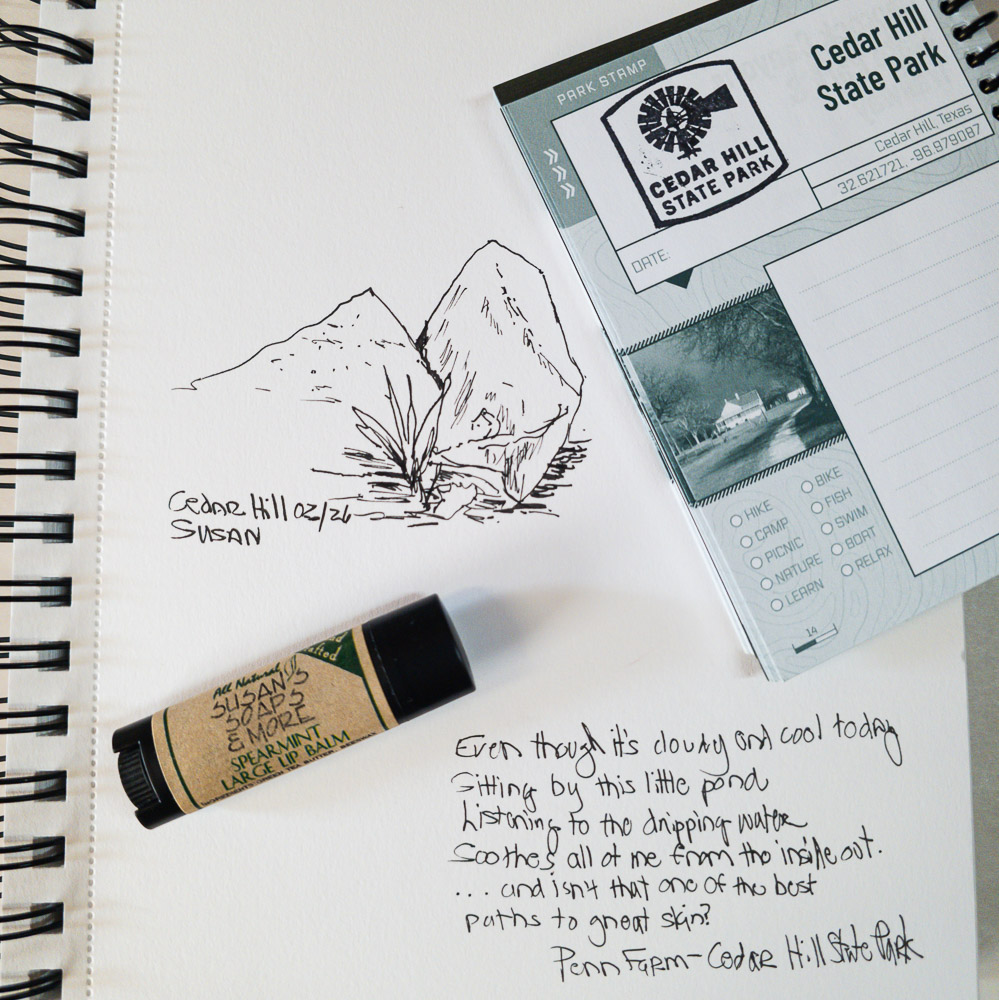 PARK STAMP
Cedar Hill
State Park
Cedar Hill, Texas
32.621721, -96.979087
CEDAR HILL
STATE PARK
DATE:
HIKE
CAMP
PICNIC
NATURE
LEARN
BIKE
FISH
SWIM
BOAT
RELAX
14
Cedar Hill 02/26
SUSAN
All Natural
SUSAN'S
SOAPS
& MORE
SPEARMINT
LARGE LIP BALM
Even though it's cloudy and cool today
Sitting by this little pond
Listening to the dripping water
Soothes all of me from the inside out.
... and isn't that one of the best
paths to great skin?
Penn Farm - Cedar Hill State Park